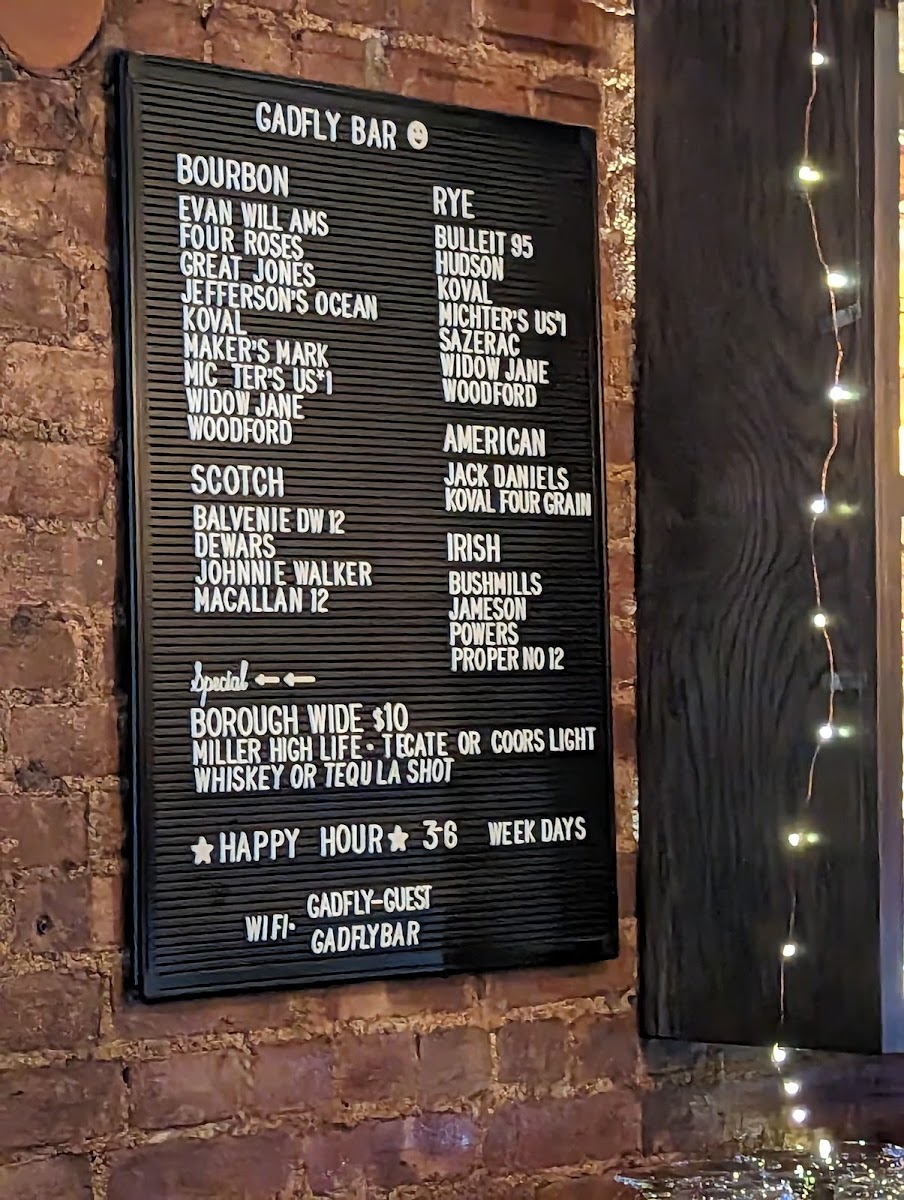 GADFLY BAR
BOURBON
EVAN WILL AMS
FOUR ROSES
GREAT JONES
JEFFERSON'S OCEAN
KOVAL
MAKER'S MARK
MIC TER'S US*1
WIDOW JANE
WOODFORD
SCOTCH
BALVENIE DW 12
DEWARS
JOHNNIE WALKER
MACALLAN 12
RYE
BULLEIT 95
HUDSON
KOVAL
MICHTER'S US*1
SAZERAC
WIDOW JANE
WOODFORD
AMERICAN
JACK DANIELS
KOVAL FOUR GRAIN
IRISH
BUSHMILLS
JAMESON
POWERS
PROPER NO 12
Special
BOROUGH WIDE $10
MILLER HIGH LIFE - TECATE OR COORS LIGHT
WHISKEY OR TEQU LA SHOT
★HAPPY HOUR★ 3-6 WEEK DAYS
WIFI- GADFLY-GUEST
GADFLYBAR